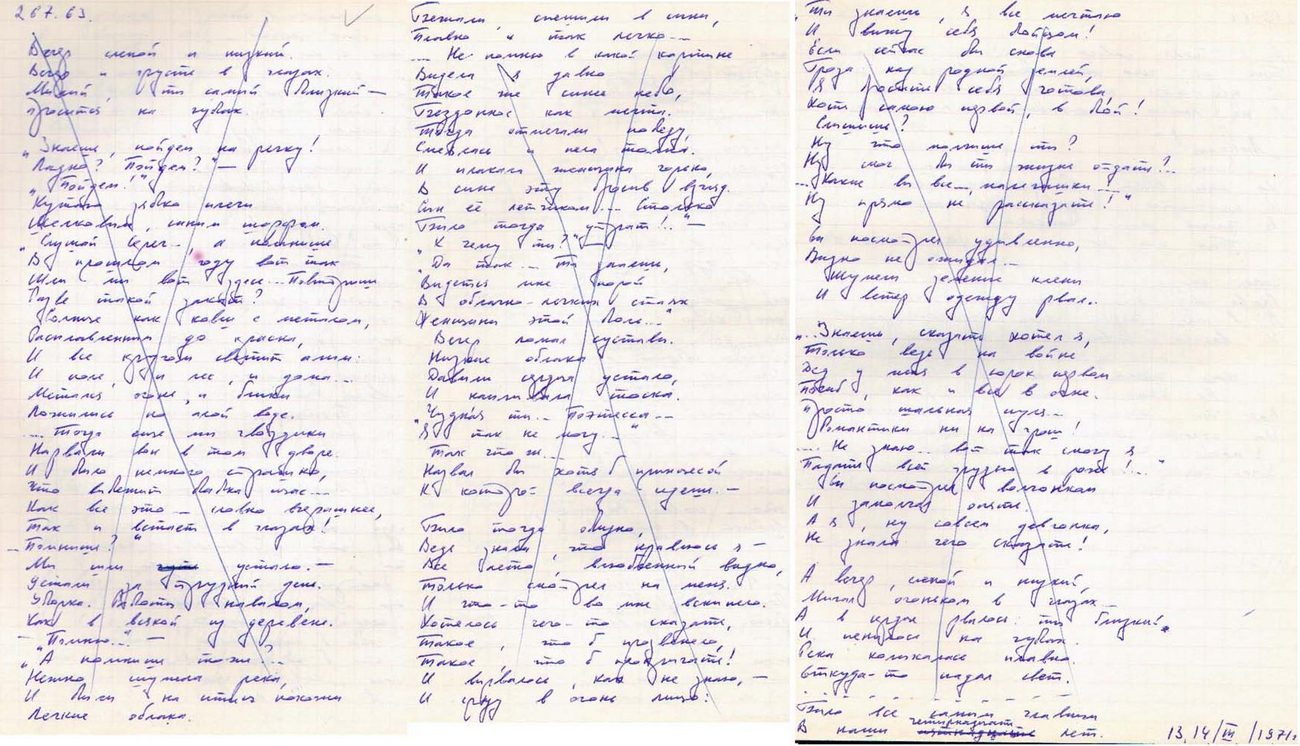 267.63.
Вечер слепой и низкий.
Вечер и грусть в глазах.
Милый, ты самый близкий —
Простит на губах.
„Знаешь, пойдем на речку!
Ладно? Пойдем?" —
„Пойдем!"
Кутаю зябко плечи
Шелковым, синим шарфом.
„Слушай Серег..., а помнишь
В прошлом году вот так
Шли мы вот здесь...
Разве такой закат?
Солнце как ковш с металлом,
Расплавленным до красна,
И все кругом светит алым:
И поле, и лес, и дома...
Метался огонь, и блики
Ложились по алой воде.
... Тогда еще мы гвоздики
Нарвали вон в том дворе.
И было немного страшно,
Что выбежит бабка щас...
Как все это — словно вчерашнее,
Так и встает в глазах!
— Помнишь?"
Мы шли устало. —
Устали за трудный день.
Уборка. Работы навалом,
Как в всякой из деревень.
— „Помню..." —
„А помнишь тоже...
Нежно шумела река,
И были на птиц похожи
Легкие облака.
Бежали, спешили в сини,
Плавно и так легко...
... Не помню в какой картине
Видели я давно
Такое же синее небо,
Бездонное как мечта.
Тогда отмечали победу,
Смеялась и пела толпа.
И плакала женщина горько,
В синь эту бросив взгляд.
Сын её летчиком... Столько
Было тогда утрат!.. —"
„К чему ты?"
„Да так... Ты знаешь,
Видется мне порой
В облачно-легких стаях
Женщины этой боль..."
Вечер ломал суставы.
Низкие облака
Давили сердца устало,
И наливала тоска.
„Чудная ты... Поэтесса...
Я так не могу..."
Так что ж...
Назвал бы хотя б принцессой
К которой всегда идешь. —
Было тогда обидно,
Ведь знала, что нравлюсь я —
Все лето, влюбленный видно,
Только смотрел на меня.
И что-то во мне вскипело.
Хотелось чего-то сказать,
Такое, что б прозвенело,
Такое, что б прокричать!
И вырвалось, как не знаю, —
И сразу в огонь лицо:
„Ты знаешь, я все мечтаю
И вижу себя бойцом!
Если сейчас бы снова
Гроза над родной землей,
Я бросить себя готова
Хоть самою первой, в бой!
Слышишь?
Ну что молчишь ты?
Ну смог бы ты жизнь отдать?..
... Какие вы все..., мальчишки...
Ну прямо не рассказать!"
Ты посмотрел удивленно,
Видно не ожидал...
Шумели зеленые клены
И ветер одежду рвал..
„... Знаешь, сказать хотел я,
Только ведь на войне
Дед у меня в сорок первом
Погиб, как и все в огне.
Просто шальная пуля...
Романтики ни на грош!
.... Не знаю.. вот так смогу я
Падать всей грудью в рожь!..."
Ты посмотрел волчонком
И замолчал опять.
А я, ну совсем девчонка,
Не знала чего сказать!
А вечер, слепой и низкий
Мигал огоньком в глазах...
А в сердце рвалось: ты близкий!.
И пенилось на губах.
Река колыхалась плавно.
Откуда-то падал свет.
- - - - - - - - -
Было все самым главным
В наши четырнадцать лет.
13,14/III/1971г.